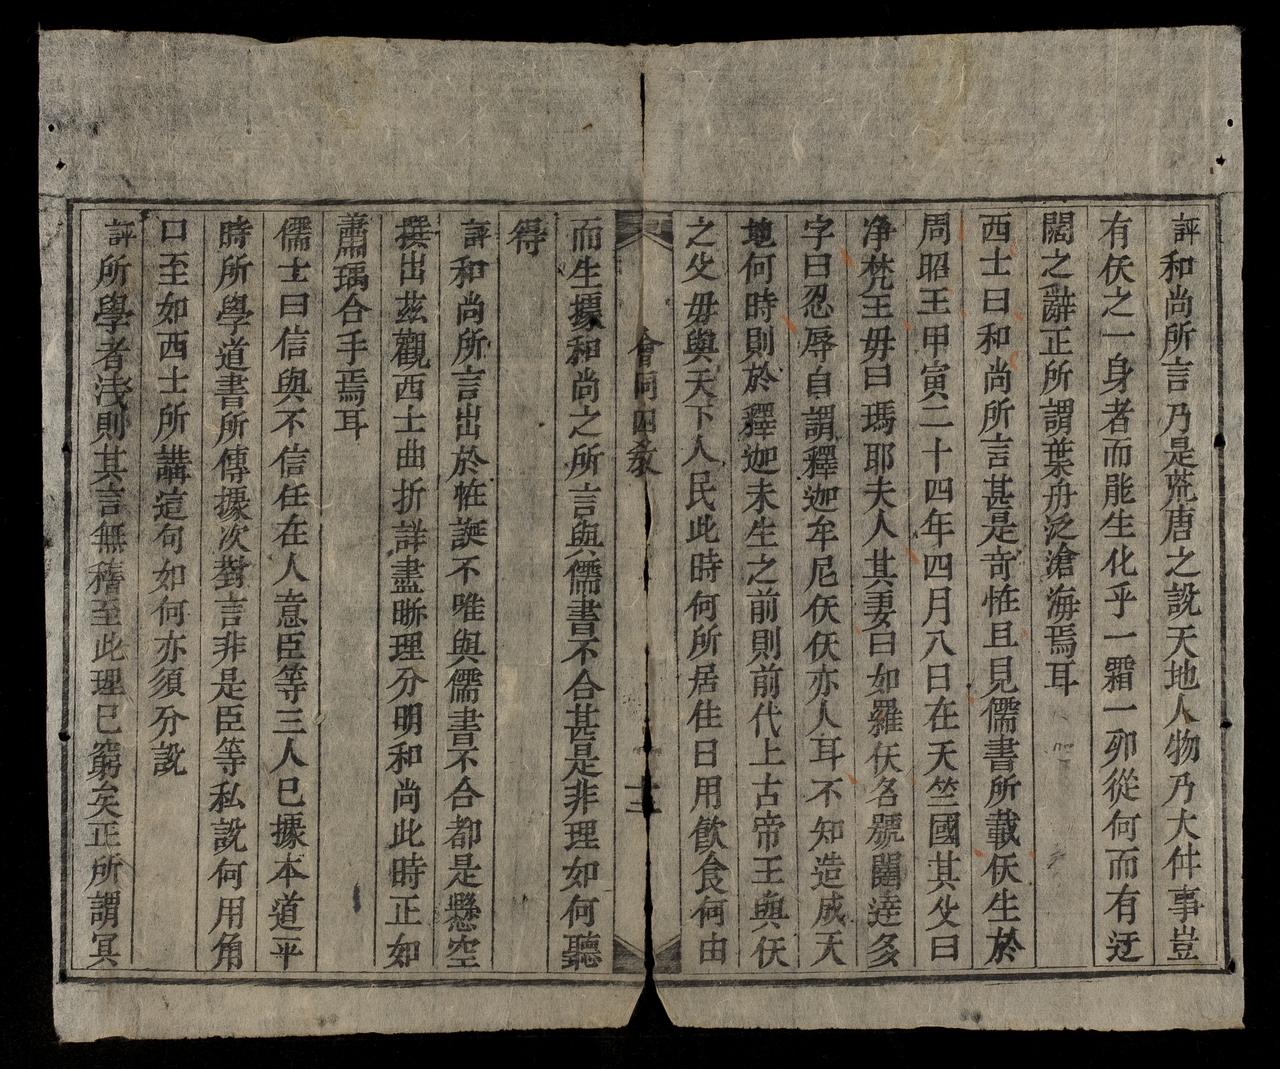 評和尚所言乃是荒唐之說天地人物乃大件事豈
有仸之一身者而能生化乎一霜一夘從何而有迂
闊之辭正所謂葉舟泛滄海焉耳
西士曰和尚所言甚是竒恠且見儒書所載仸生於
周昭王甲寅二十四年四月八日在天竺國其父曰
净梵王母曰瑪耶夫人其妻曰如羅仸名號闥達多
字曰忍辱自謂釋迦牟尼仸仸亦人耳不知造成天
地何時則於釋迦未生之前則前代上古帝王與仸
之父毋與天下人民此時何所居住日用飲食何由
會同四教
十三
而生據和尚之所言與儒書不合甚是非理如何聽
得
評和尚所言出於恠誕不唯與儒書不合都是懸空
撰出茲觀西士曲折詳盡晰理分明和尚此時正如
蕭瑀合手焉耳
儒士曰信與不信任在人意臣等三人已據本道平
時所學道書所傳據次對言非是臣等私說何用角
口至如西士所講這句如何亦須分說
評所學者浅則其言無稽至此理已窮矣正所謂冥